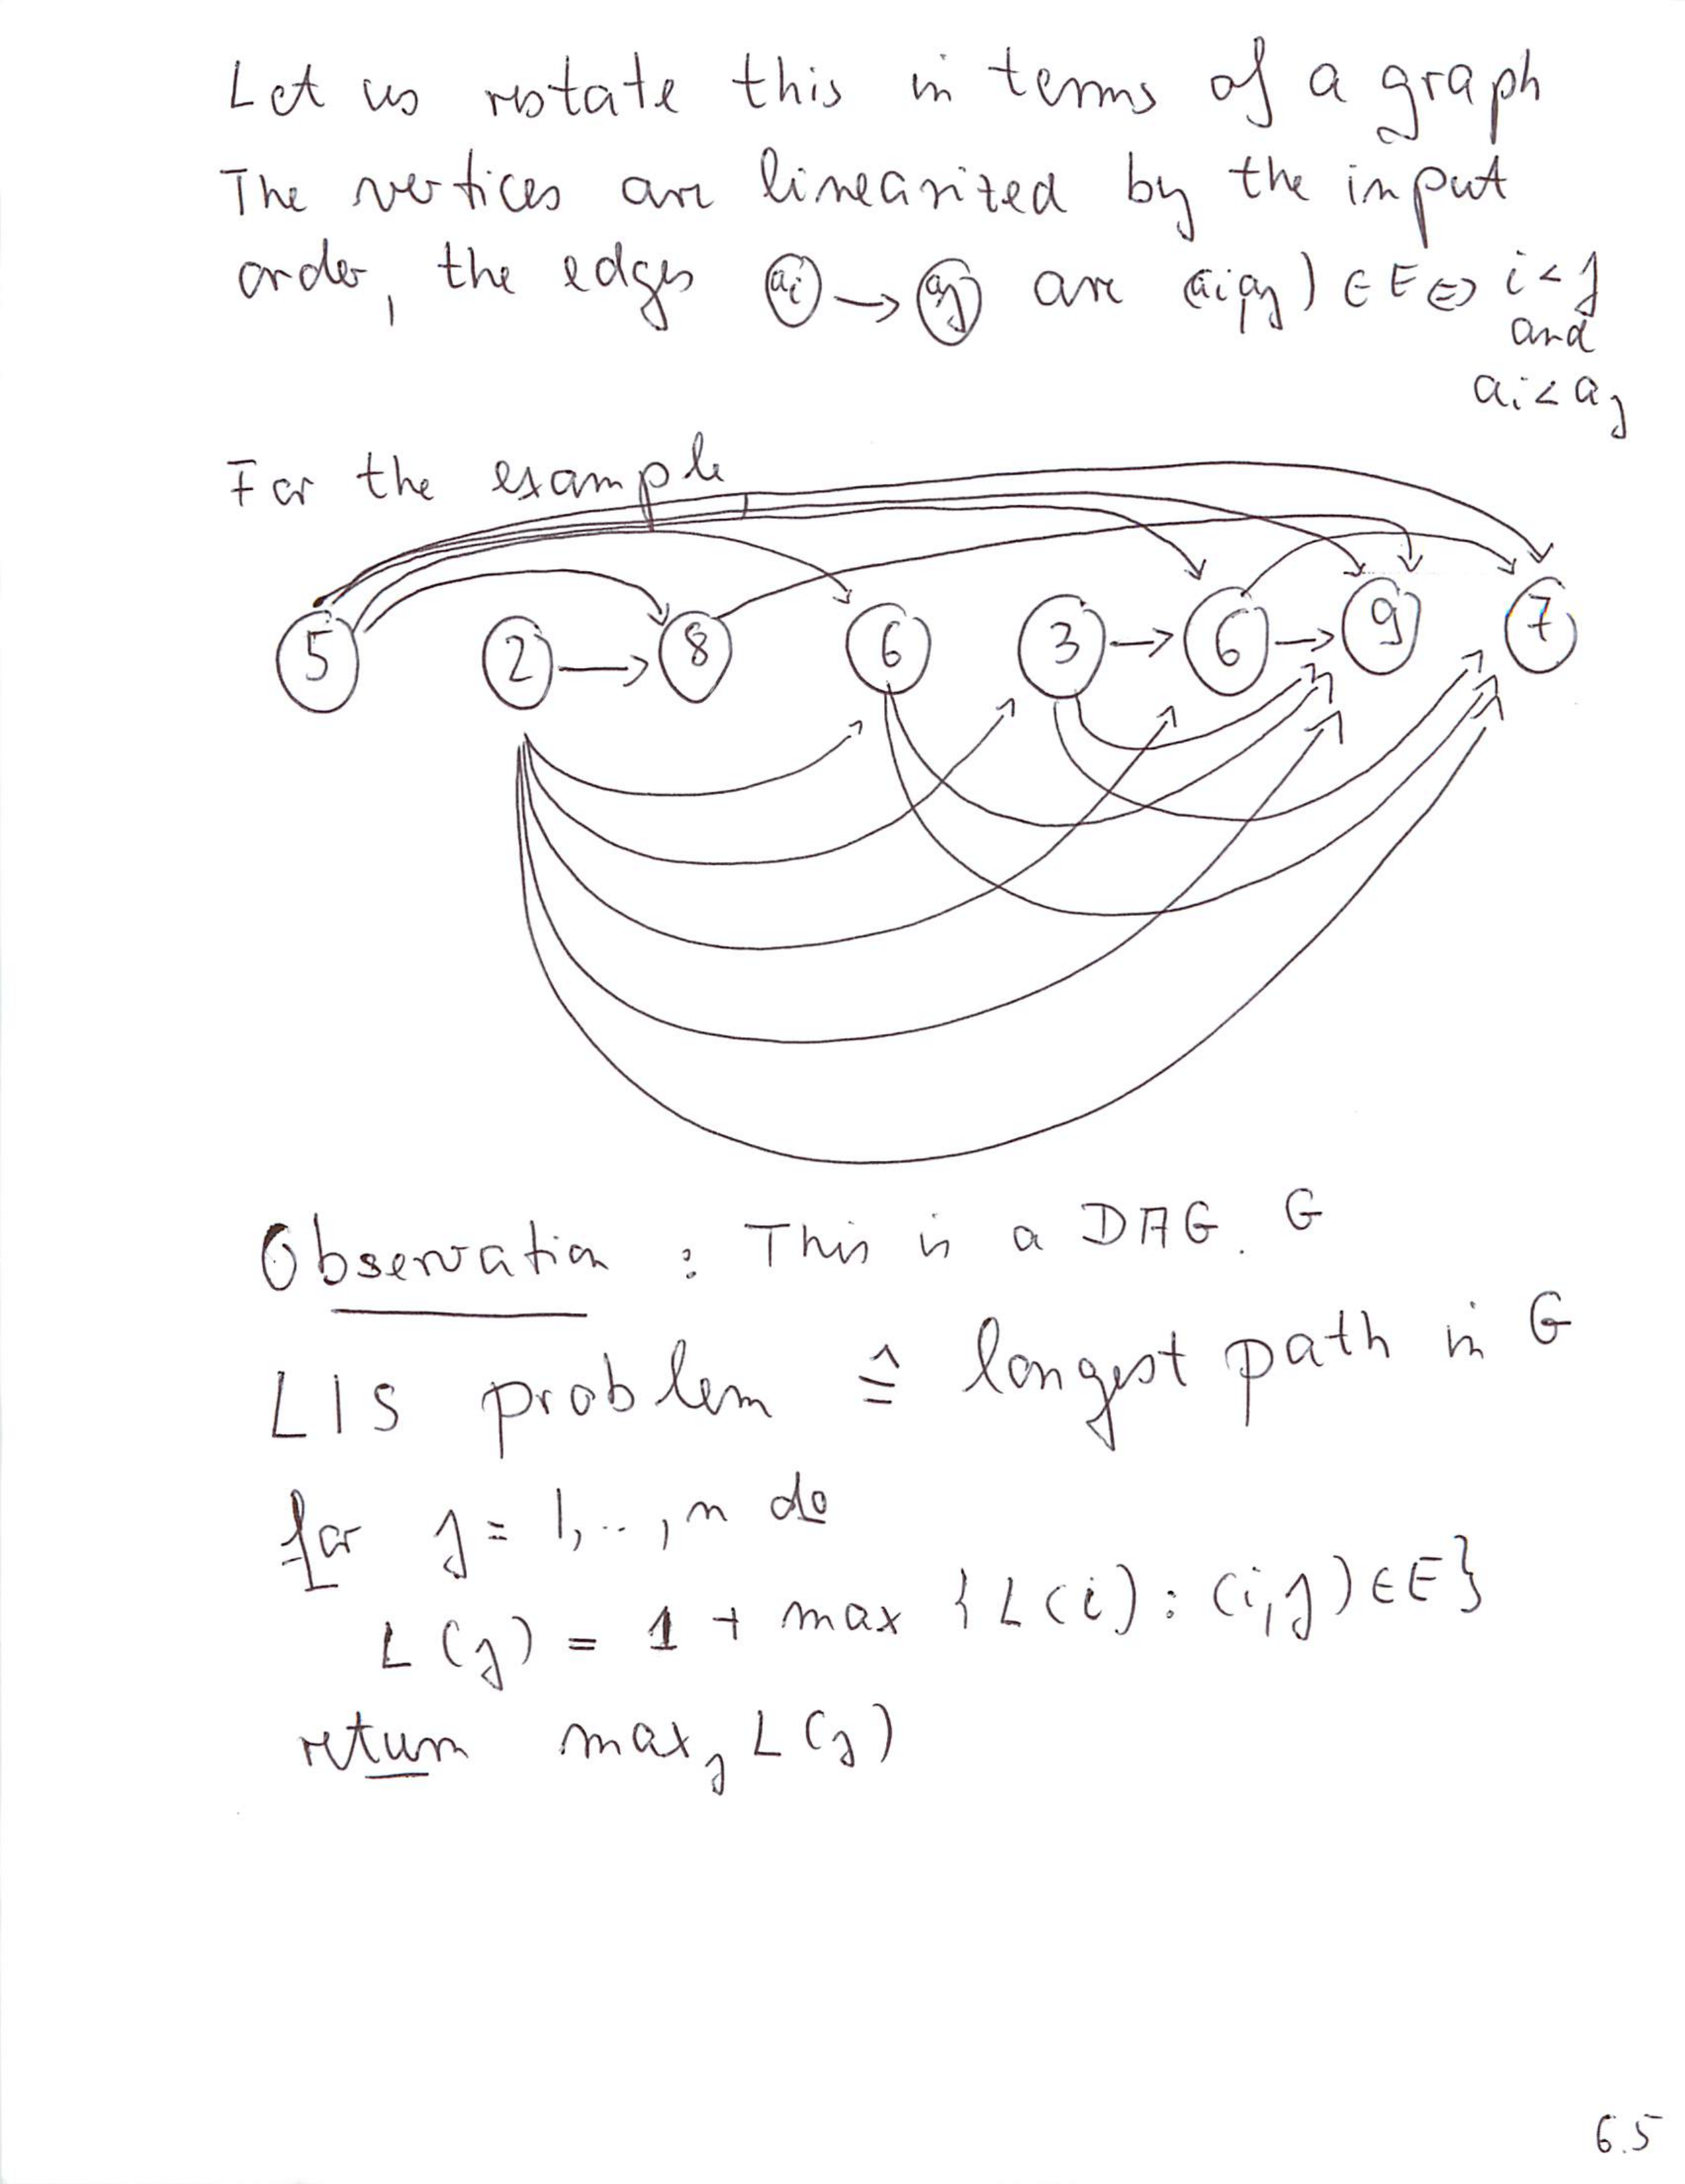 Let us restate this in terms of a graph
The vertices are linearized by the input
order, the edges ai → aj are (ai,aj) ∈ E ⇔ i < j
and
ai < aj
For the example
5 2 → 8 6 3 → 6 → 9 7
Observation : This is a DAG. G
LIS problem ≙ longest path in G
for j = 1,..,n do
L(j) = 1 + max {L(i) : (i,j) ∈ E}
return maxj L(j)
6.5